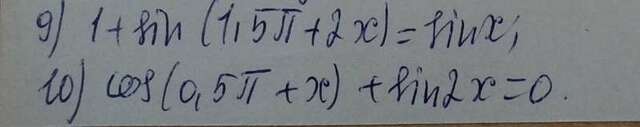 9) 1 + sin (1,5π + 2x) = sin x;
10) cos (0,5π + x) + sin 2x = 0.